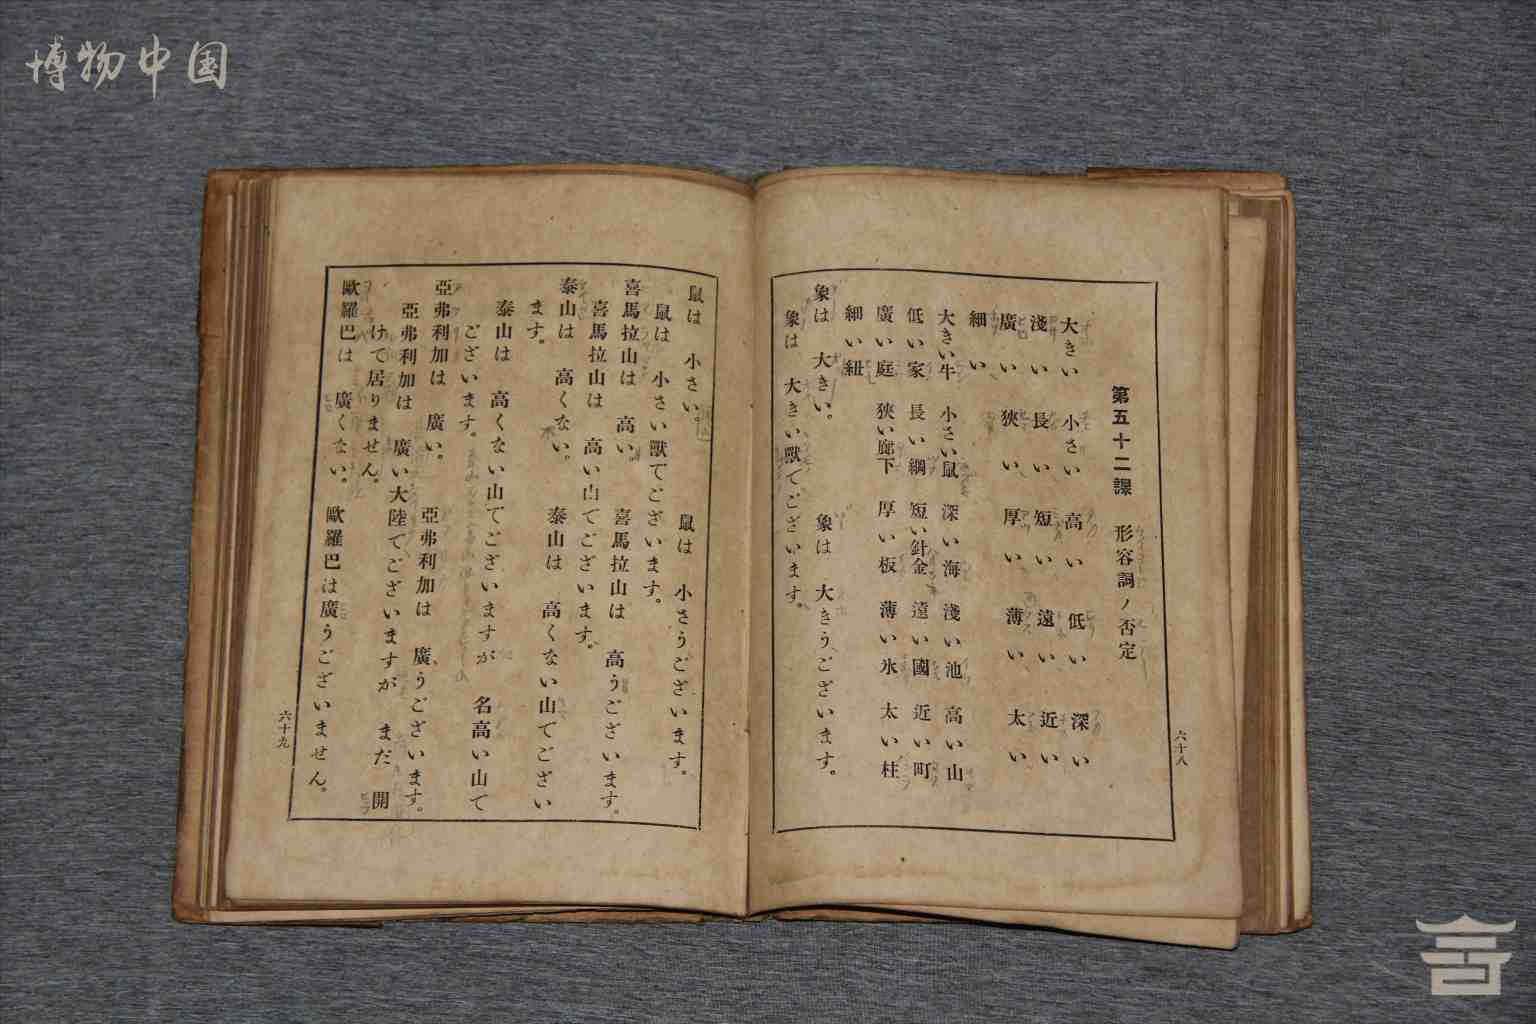 博物中国
第五十二課 形容詞ノ否定
大きい 小さい 高い 低い 深い
淺い 長い 短い 遠い 近い
廣い 狹い 厚い 薄い 太い
細い
大きい牛 小さい鼠 深い海 淺い池 高い山
低い家 長い綱 短い針金 遠い國 近い町
廣い庭 狹い廊下 厚い板 薄い氷 太い柱
細い紐
象は 大きい。 象は 大きうございます。
象は 大きい獸でございます。
六十八
鼠は 小さい。 鼠は 小さうございます。
鼠は 小さい獸でございます。
喜馬拉山は 高い。 喜馬拉山は 高うございます。
喜馬拉山は 高い山でございます。
泰山は 高くない。 泰山は 高くない山でござい
ます。
泰山は 高くない山でございますが 名高い山で
ございます。
亞弗利加は 廣い。 亞弗利加は 廣うございます。
亞弗利加は 廣い大陸でございますが まだ 開
けて居りません。
歐羅巴は 廣くない。 歐羅巴は廣うございません。
六十九